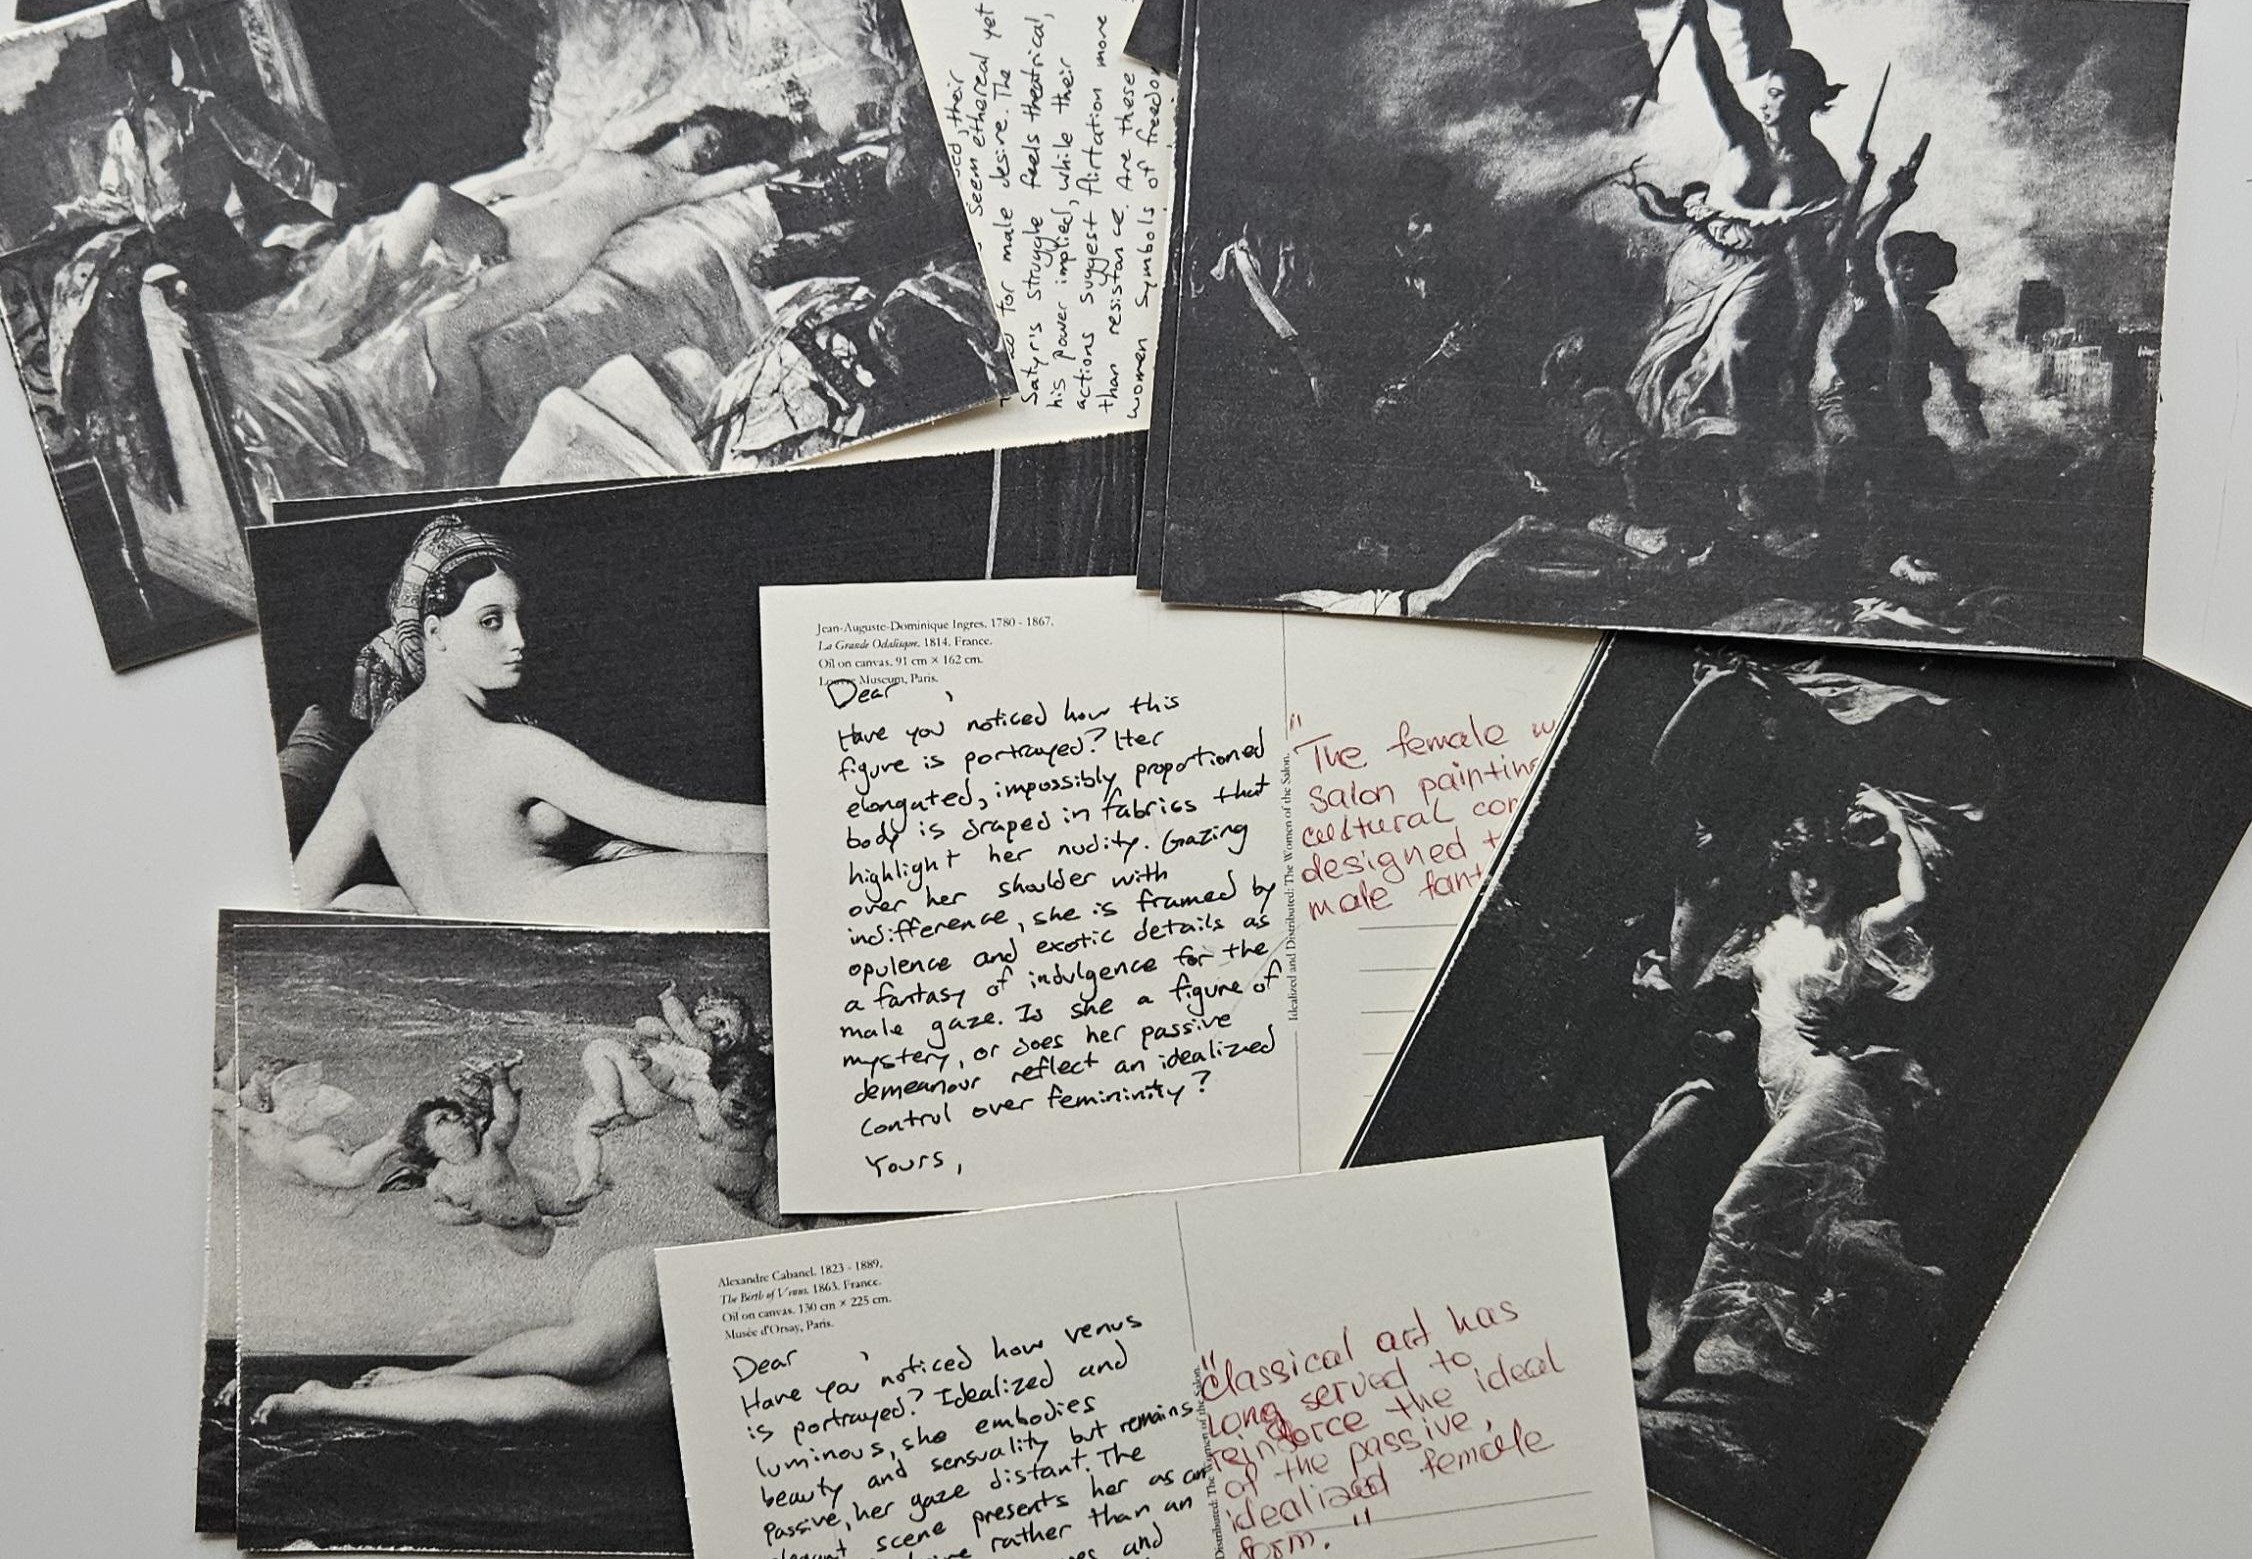 Seem ethereal yet
for male desire. The
Satyr's struggle feels theatrical,
his power implied, while their
actions suggest flirtation more
than resistance. Are these
women symbols of freedom
Jean-Auguste-Dominique Ingres, 1780 - 1867.
La Grande Odalisque. 1814. France.
Oil on canvas. 91 cm × 162 cm.
Louvre Museum, Paris.
Dear ,
Have you noticed how this
figure is portrayed? Her
elongated, impossibly proportioned
body is draped in fabrics that
highlight her nudity. Gazing
over her shoulder with
indifference, she is framed by
opulence and exotic details as
a fantasy of indulgence for the
male gaze. Is she a figure of
mystery, or does her passive
demeanour reflect an idealized
control over femininity?
Yours,
Idealized and Distributed: The Women of the Salon.
"The female
salon painting
cultural
designed
male
Alexandre Cabanel. 1823 - 1889.
The Birth of Venus. 1863. France.
Oil on canvas. 130 cm × 225 cm.
Musée d'Orsay, Paris.
Dear ,
Have you noticed how venus
is portrayed? Idealized and
luminous, she embodies
beauty and sensuality but remains
passive, her gaze distant. The
scene presents her as an
rather than an
and
Distributed: The Women of the Salon.
"Classical art has
long served to
reinforce the ideal
of the passive,
idealized female
form."